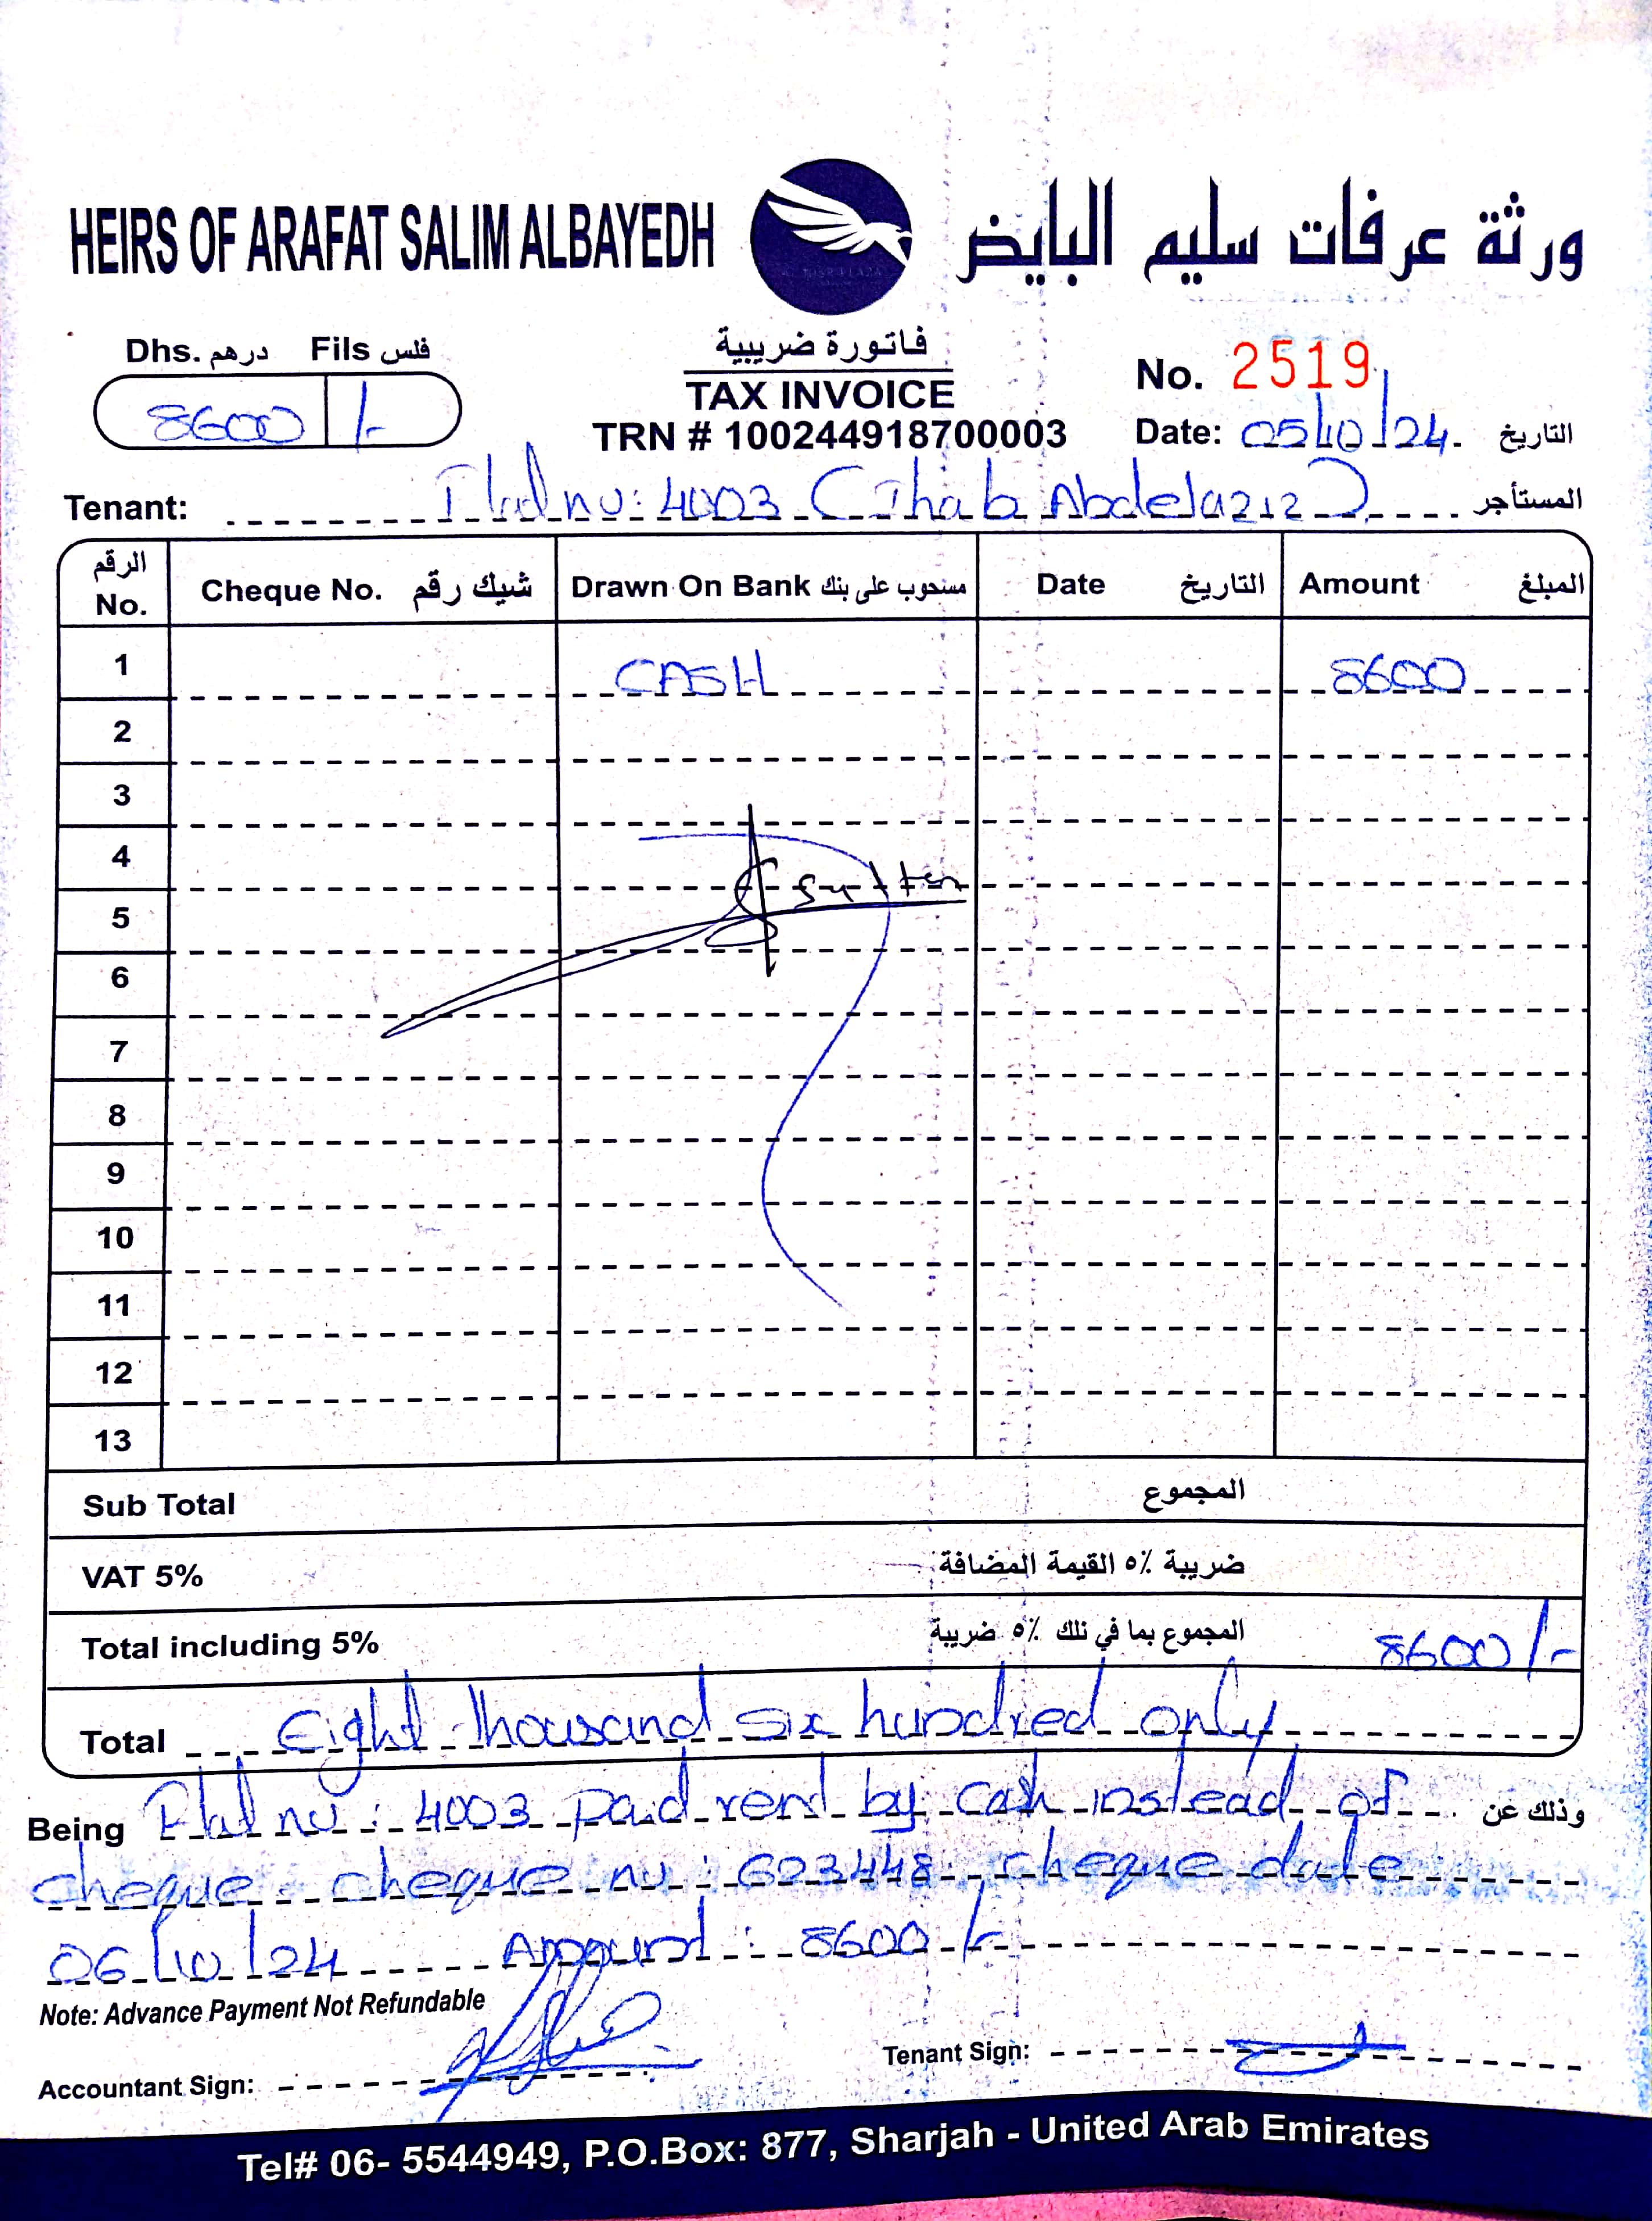 HEIRS OF ARAFAT SALIM ALBAYEDH ورثة عرفات سليم البايض
Dhs. درهم Fils فلس
8600 /-
فاتورة ضريبية
TAX INVOICE
TRN # 100244918700003
No. 2519
Date: 05/10/24. التاريخ
Tenant: Flat no: 4003 (Ihab Abdelaziz) المستأجر
الرقم No. Cheque No. شيك رقم Drawn On Bank مسحوب على بنك Date التاريخ Amount المبلغ
1 CASH 8600
2
3
4 Sultan
5
6
7
8
9
10
11
12
13
Sub Total المجموع
VAT 5% ضريبة ٥٪ القيمة المضافة
Total including 5% المجموع بما في ذلك ٥٪ ضريبة 8600/-
Total Eight thousand six hundred only
Being Flat no: 4003 paid rent by cash instead of وذلك عن
cheque. cheque no: 623448, cheque date
06/10/24 Amount: 8600/-
Note: Advance Payment Not Refundable
Accountant Sign:
Tenant Sign:
Tel# 06- 5544949, P.O.Box: 877, Sharjah - United Arab Emirates